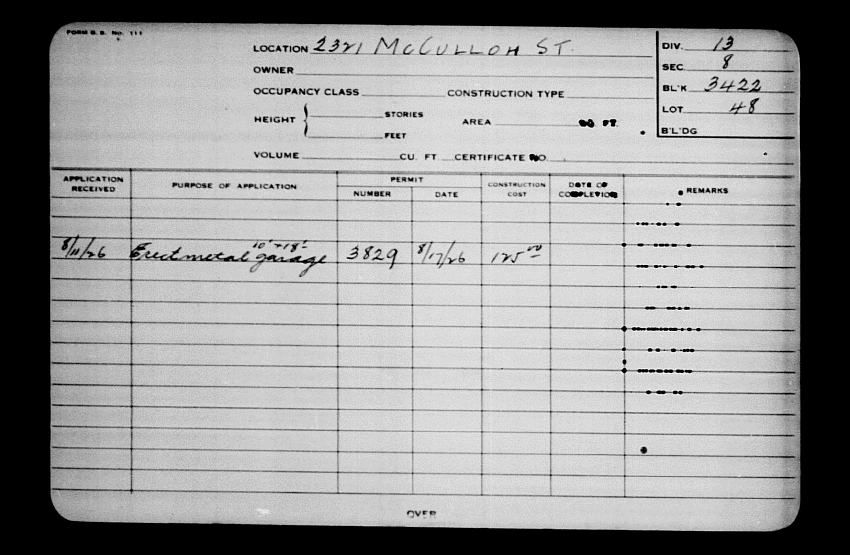 FORM B. B. No. 111
LOCATION 2321 McCULLOH ST.
DIV. 13
OWNER
SEC. 8
OCCUPANCY CLASS CONSTRUCTION TYPE
BL'K 3422
HEIGHT { STORIES AREA SQ FT.
LOT 48
FEET
B'L'DG
VOLUME CU. FT CERTIFICATE NO.
APPLICATION RECEIVED PURPOSE OF APPLICATION PERMIT NUMBER DATE CONSTRUCTION COST DATE OF COMPLETION REMARKS
10' x 18'
8/11/26 Erect metal garage 3829 8/17/26 125 00
OVER